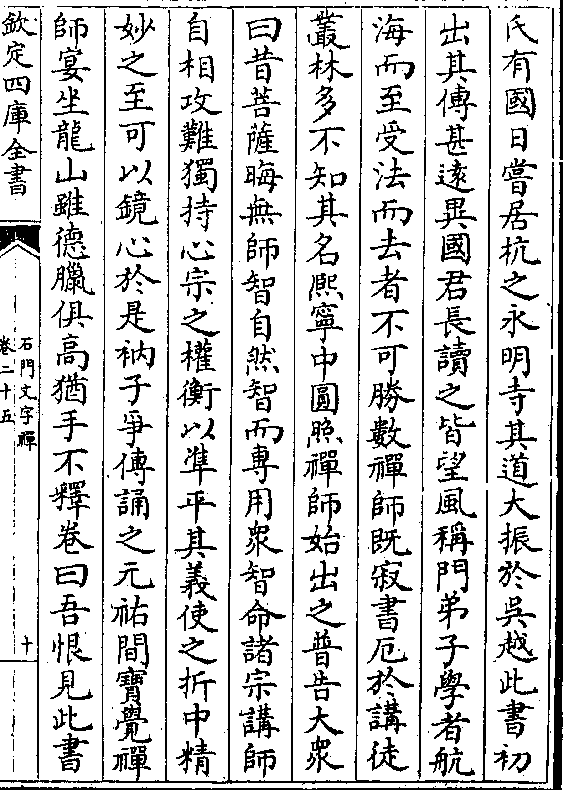 氏有國日嘗居杭之永明寺其道大振於吳越此書初
出其傳甚遠異國君長讀之皆望風稱門弟子學者航
海而至受法而去者不可勝數禪師既寂書厄於講徒
叢林多不知其名熈寧中圓照禪師始出之普告大衆
曰昔菩薩晦無師智自然智而專用衆智命諸宗講師
自相攻難獨持心宗之權衡以準平其義使之折中精
妙之至可以鏡心於是衲子爭傳誦之元祐間寶覺禪
師宴坐龍山雖德臘俱高猶手不釋卷曰吾恨見此書
欽定四庫全書
石門文字禪
卷二十五
十